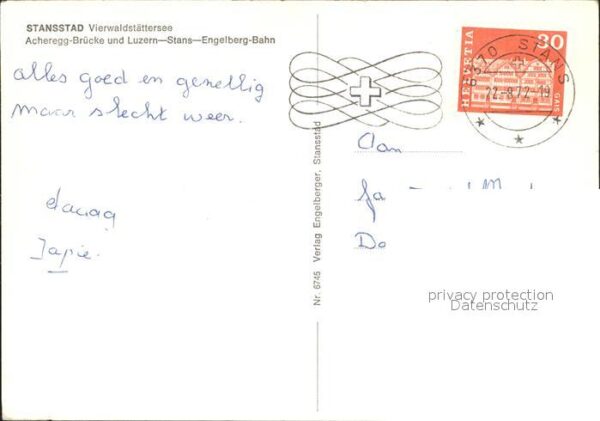 STANSSTAD Vierwaldstättersee
Acheregg-Brücke und Luzern—Stans—Engelberg-Bahn
alles goed en gezellig
maar slecht weer.
daaag
Japie.
Nr. 6745 Verlag Engelberger, Stansstad
HELVETIA
30
GAIS
6370 STANS
22.-8.72-19
Aan
fa
M
Do
privacy protection
Datenschutz